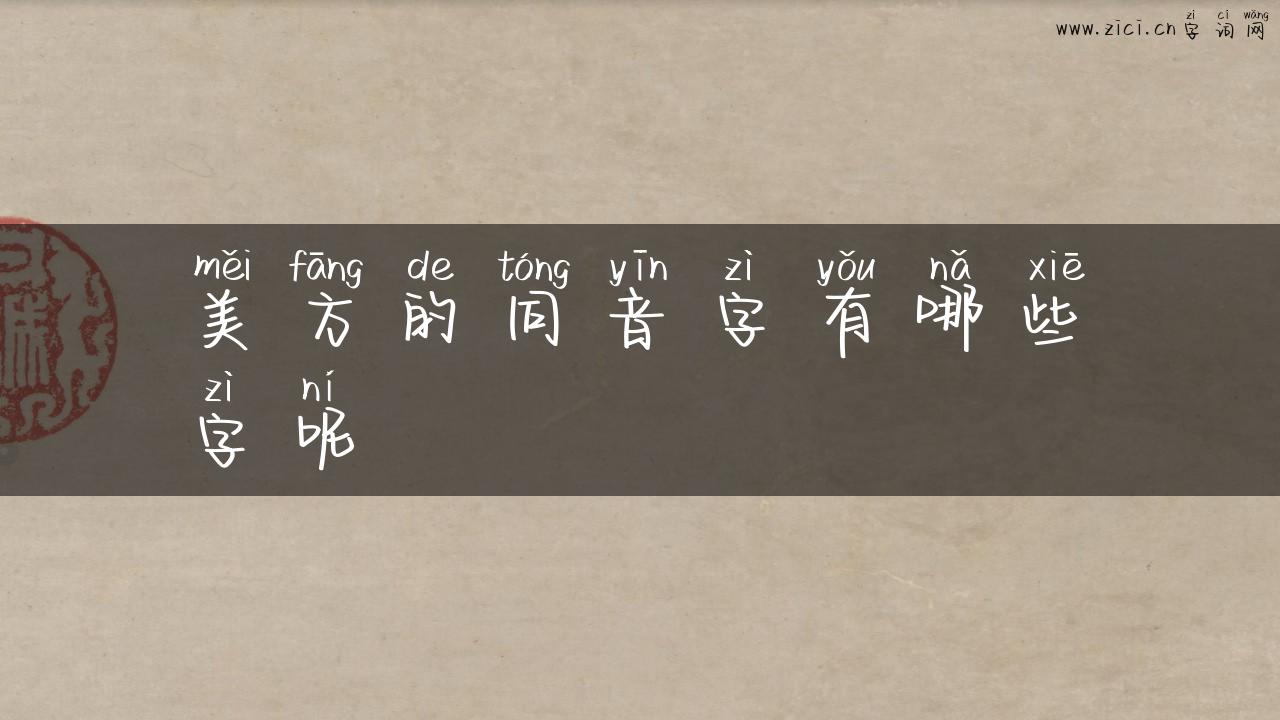 zì cí wǎng
www.zici.cn 字词网
měi fāng de tóng yīn zì yǒu nǎ xiē
美方的同音字有哪些
zì ní
字呢